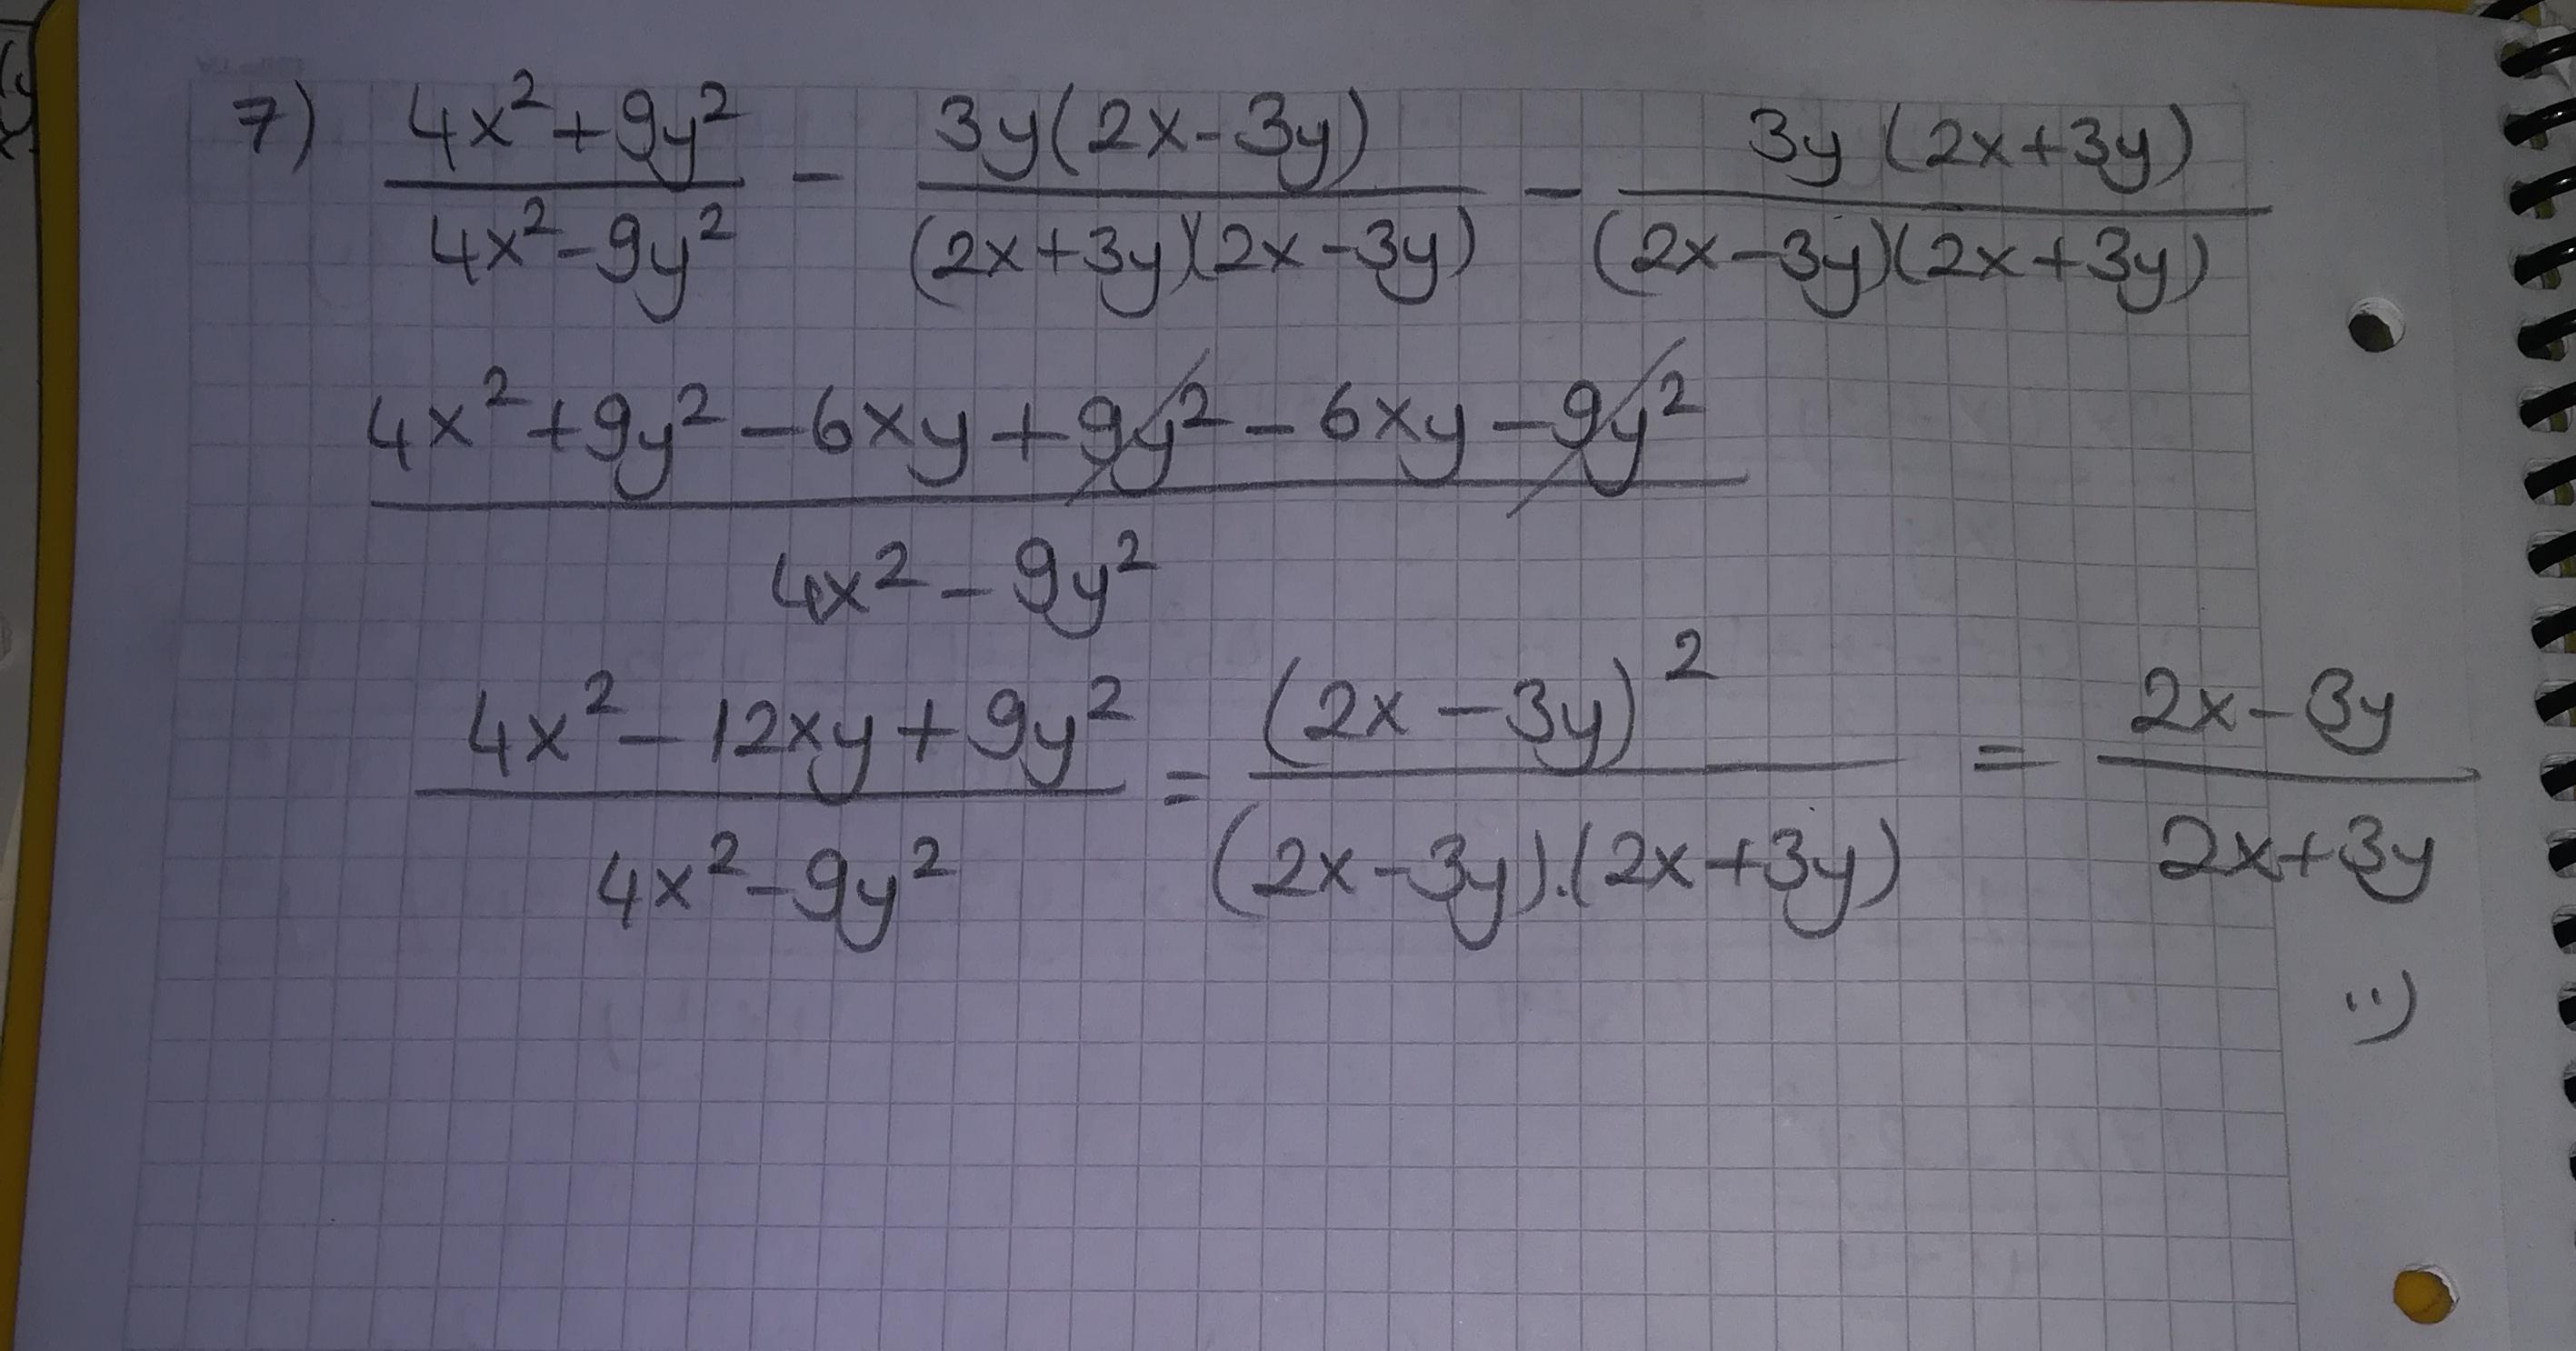 7) (4x²+9y²)/(4x²-9y²) - 3y(2x-3y)/((2x+3y)(2x-3y)) - 3y(2x+3y)/((2x-3y)(2x+3y))
(4x²+9y²-6xy+9y²-6xy-9y²)/(4x²-9y²)
(4x²-12xy+9y²)/(4x²-9y²) = (2x-3y)²/((2x-3y).(2x+3y)) = (2x-3y)/(2x+3y)
:)